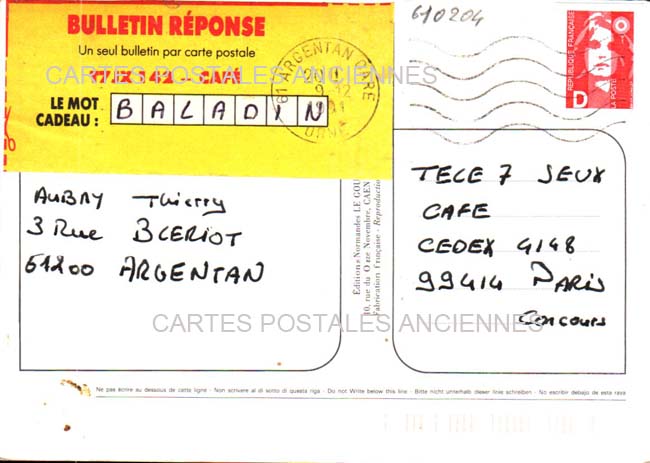 BULLETIN RÉPONSE
Un seul bulletin par carte postale
CARTES POSTALES ANCIENNES
LE MOT
CADEAU : BALADIN
610204
61 ARGENTAN GARE
ORNE
RÉPUBLIQUE FRANÇAISE
LA POSTE
D
AUBRY Thierry
3 Rue BLERIOT
61200 ARGENTAN
Editions Normandes LE GOU
10, rue du Onze Novembre, CAEN
Fabrication Française - Reproductio
TELE 7 JEUX
CAFE
CEDEX 4148
99414 PARIS
Concours
CARTES POSTALES ANCIENNES
Ne pas écrire au dessous de cette ligne - Non scrivere al di sotto di questa riga - Do not Write below this line - Bitte nicht unterhalb dieser linie schreiben - No escribir debejo de esta raya